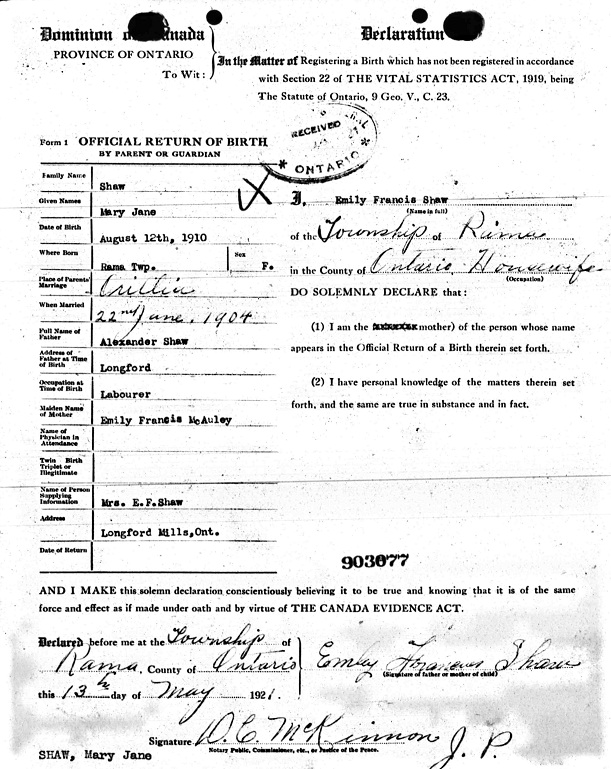 Dominion of Canada
PROVINCE OF ONTARIO
To Wit:
Declaration
In the Matter of Registering a Birth which has not been registered in accordance
with Section 22 of THE VITAL STATISTICS ACT, 1919, being
The Statute of Ontario, 9 Geo. V., C. 23.
RECEIVED
ONTARIO
Form 1 OFFICIAL RETURN OF BIRTH
BY PARENT OR GUARDIAN
Family Name Shaw
Given Names Mary Jane
Date of Birth August 12th, 1910
Where Born Rama Twp. Sex F.
Place of Parents' Marriage Orillia
When Married 22nd June, 1904
Full Name of Father Alexander Shaw
Address of Father at Time of Birth Longford
Occupation at Time of Birth Labourer
Maiden Name of Mother Emily Francis McAuley
Name of Physician in Attendance
Twin Birth Triplet or Illegitimate
Name of Person Supplying Information Mrs. E.F.Shaw
Address Longford Mills,Ont.
Date of Return
I, Emily Francis Shaw
(Name in full)
of the Township of Rama
in the County of Ontario, Housewife
(Occupation)
DO SOLEMNLY DECLARE that :
(1) I am the mother) of the person whose name
appears in the Official Return of a Birth therein set forth.
(2) I have personal knowledge of the matters therein set
forth, and the same are true in substance and in fact.
903077
AND I MAKE this solemn declaration conscientiously believing it to be true and knowing that it is of the same
force and effect as if made under oath and by virtue of THE CANADA EVIDENCE ACT.
Declared before me at the Township of
Rama, County of Ontario
this 13th day of May 1921.
Emley Frances Shaw
(Signature of father or mother of child)
Signature D. C. McKinnon J. P.
Notary Public, Commissioner, etc., or Justice of the Peace.
SHAW, Mary Jane